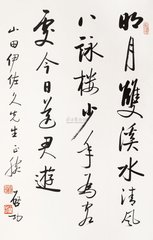 明月雙溪水清風
八詠樓少年為客
處今日送君遊
山田伊佐久先生正鵠
啟功